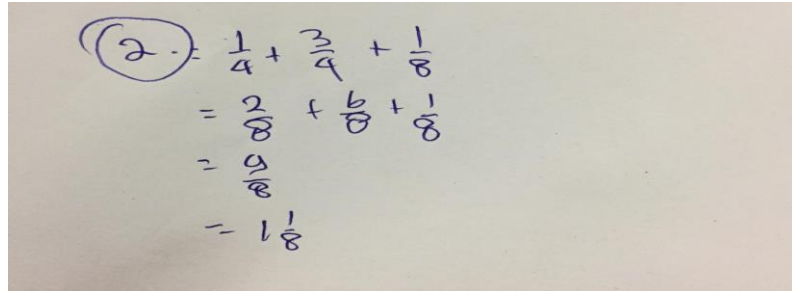 2. = 1/4 + 3/4 + 1/8
= 2/8 + 6/8 + 1/8
= 9/8
= 1 1/8